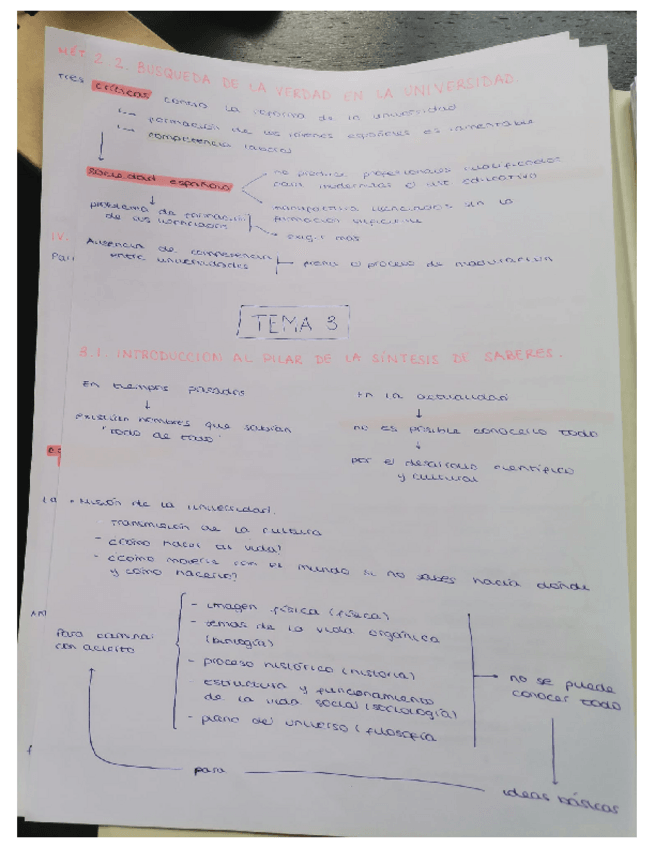 MÉT 2. 2. BÚSQUEDA DE LA VERDAD EN LA UNIVERSIDAD.
Tres críticas contra la reforma de la universidad
formación de los jóvenes españoles es lamentable
competencia laboral
Sociedad española
no produce profesionales cualificados
manufactura licenciados sin la
formación suficiente
problema de formación
de los licenciados
exigir más
IV.
Ausencia de competencia
entre universidades
el proceso de
TEMA 3
3.1. INTRODUCCION AL PILAR DE LA SÍNTESIS DE SABERES.
En tiempos pasados
En la actualidad
existían hombres que sabían
"todo de todo"
no es posible conocerlo todo
por el desarrollo científico
y cultural
Misión de la universidad.
- Transmisión de la cultura
- ¿Cómo nacer al vida?
- ¿Cómo moverse con el mundo si no sabes hacia dónde
y cómo hacerlo?
Para caminar
con acierto
- imagen física (física)
- temas de la vida orgánica
(biología)
- proceso histórico (historia)
- estructura y funcionamiento
de la vida social (sociología)
- plano del universo (filosofía
no se puede
conocer todo
para
ideas básicas